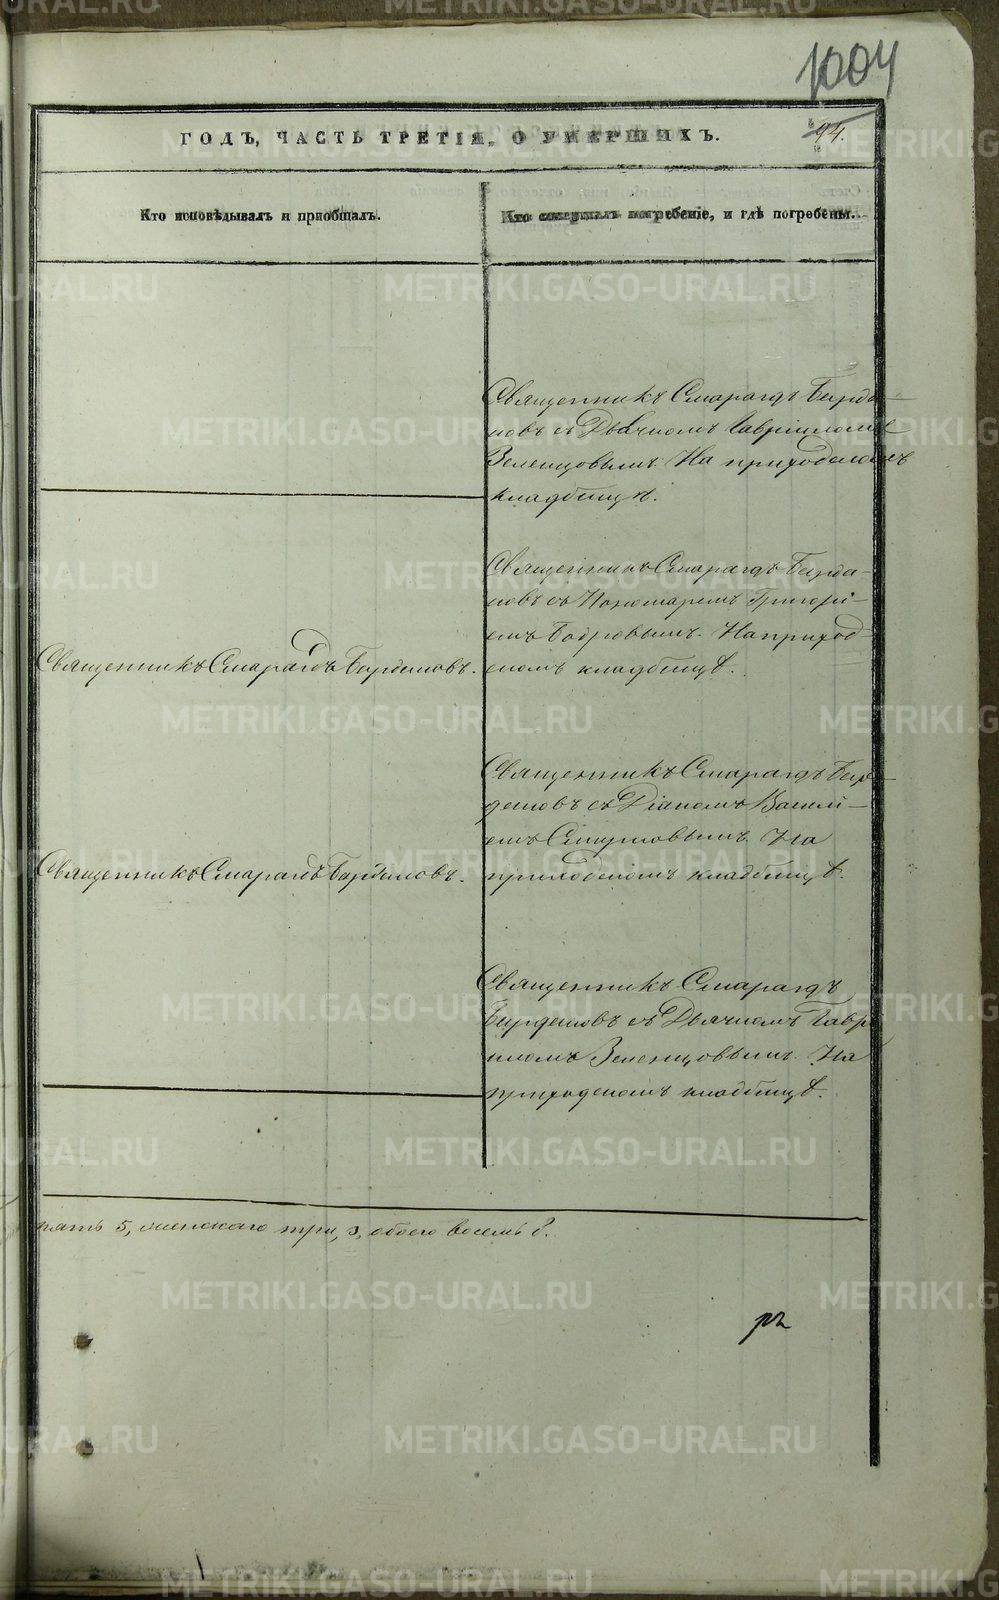 1004
94.
ГОДЪ, ЧАСТЬ ТРЕТІЯ, О УМЕРШИХЪ.
Кто исповѣдывалъ и пріобщалъ.
Кто совершалъ погребеніе, и гдѣ погребены.
Священникъ Смарагдъ Бирде-
новъ съ Дьячкомъ Гавриломъ
Зеленцовымъ. На приходскомъ
кладбищѣ.
Священникъ Смарагдъ Бирде-
новъ съ Пономаремъ Григорі-
емъ Бобровымъ. На приход-
скомъ кладбищѣ.
Священникъ Смарагдъ Бирденовъ.
Священникъ Смарагдъ Бир-
деновъ съ Діакономъ Василі-
емъ Смирновымъ. На
приходскомъ кладбищѣ.
Священникъ Смарагдъ Бирденовъ.
Священникъ Смарагдъ
Бирденовъ съ Дьячкомъ Гаври-
иломъ Зеленцовымъ. На
приходскомъ кладбищѣ.
пять 5, женскаго три, 3, обоего восемь 8.
METRIKI.GASO-URAL.RU